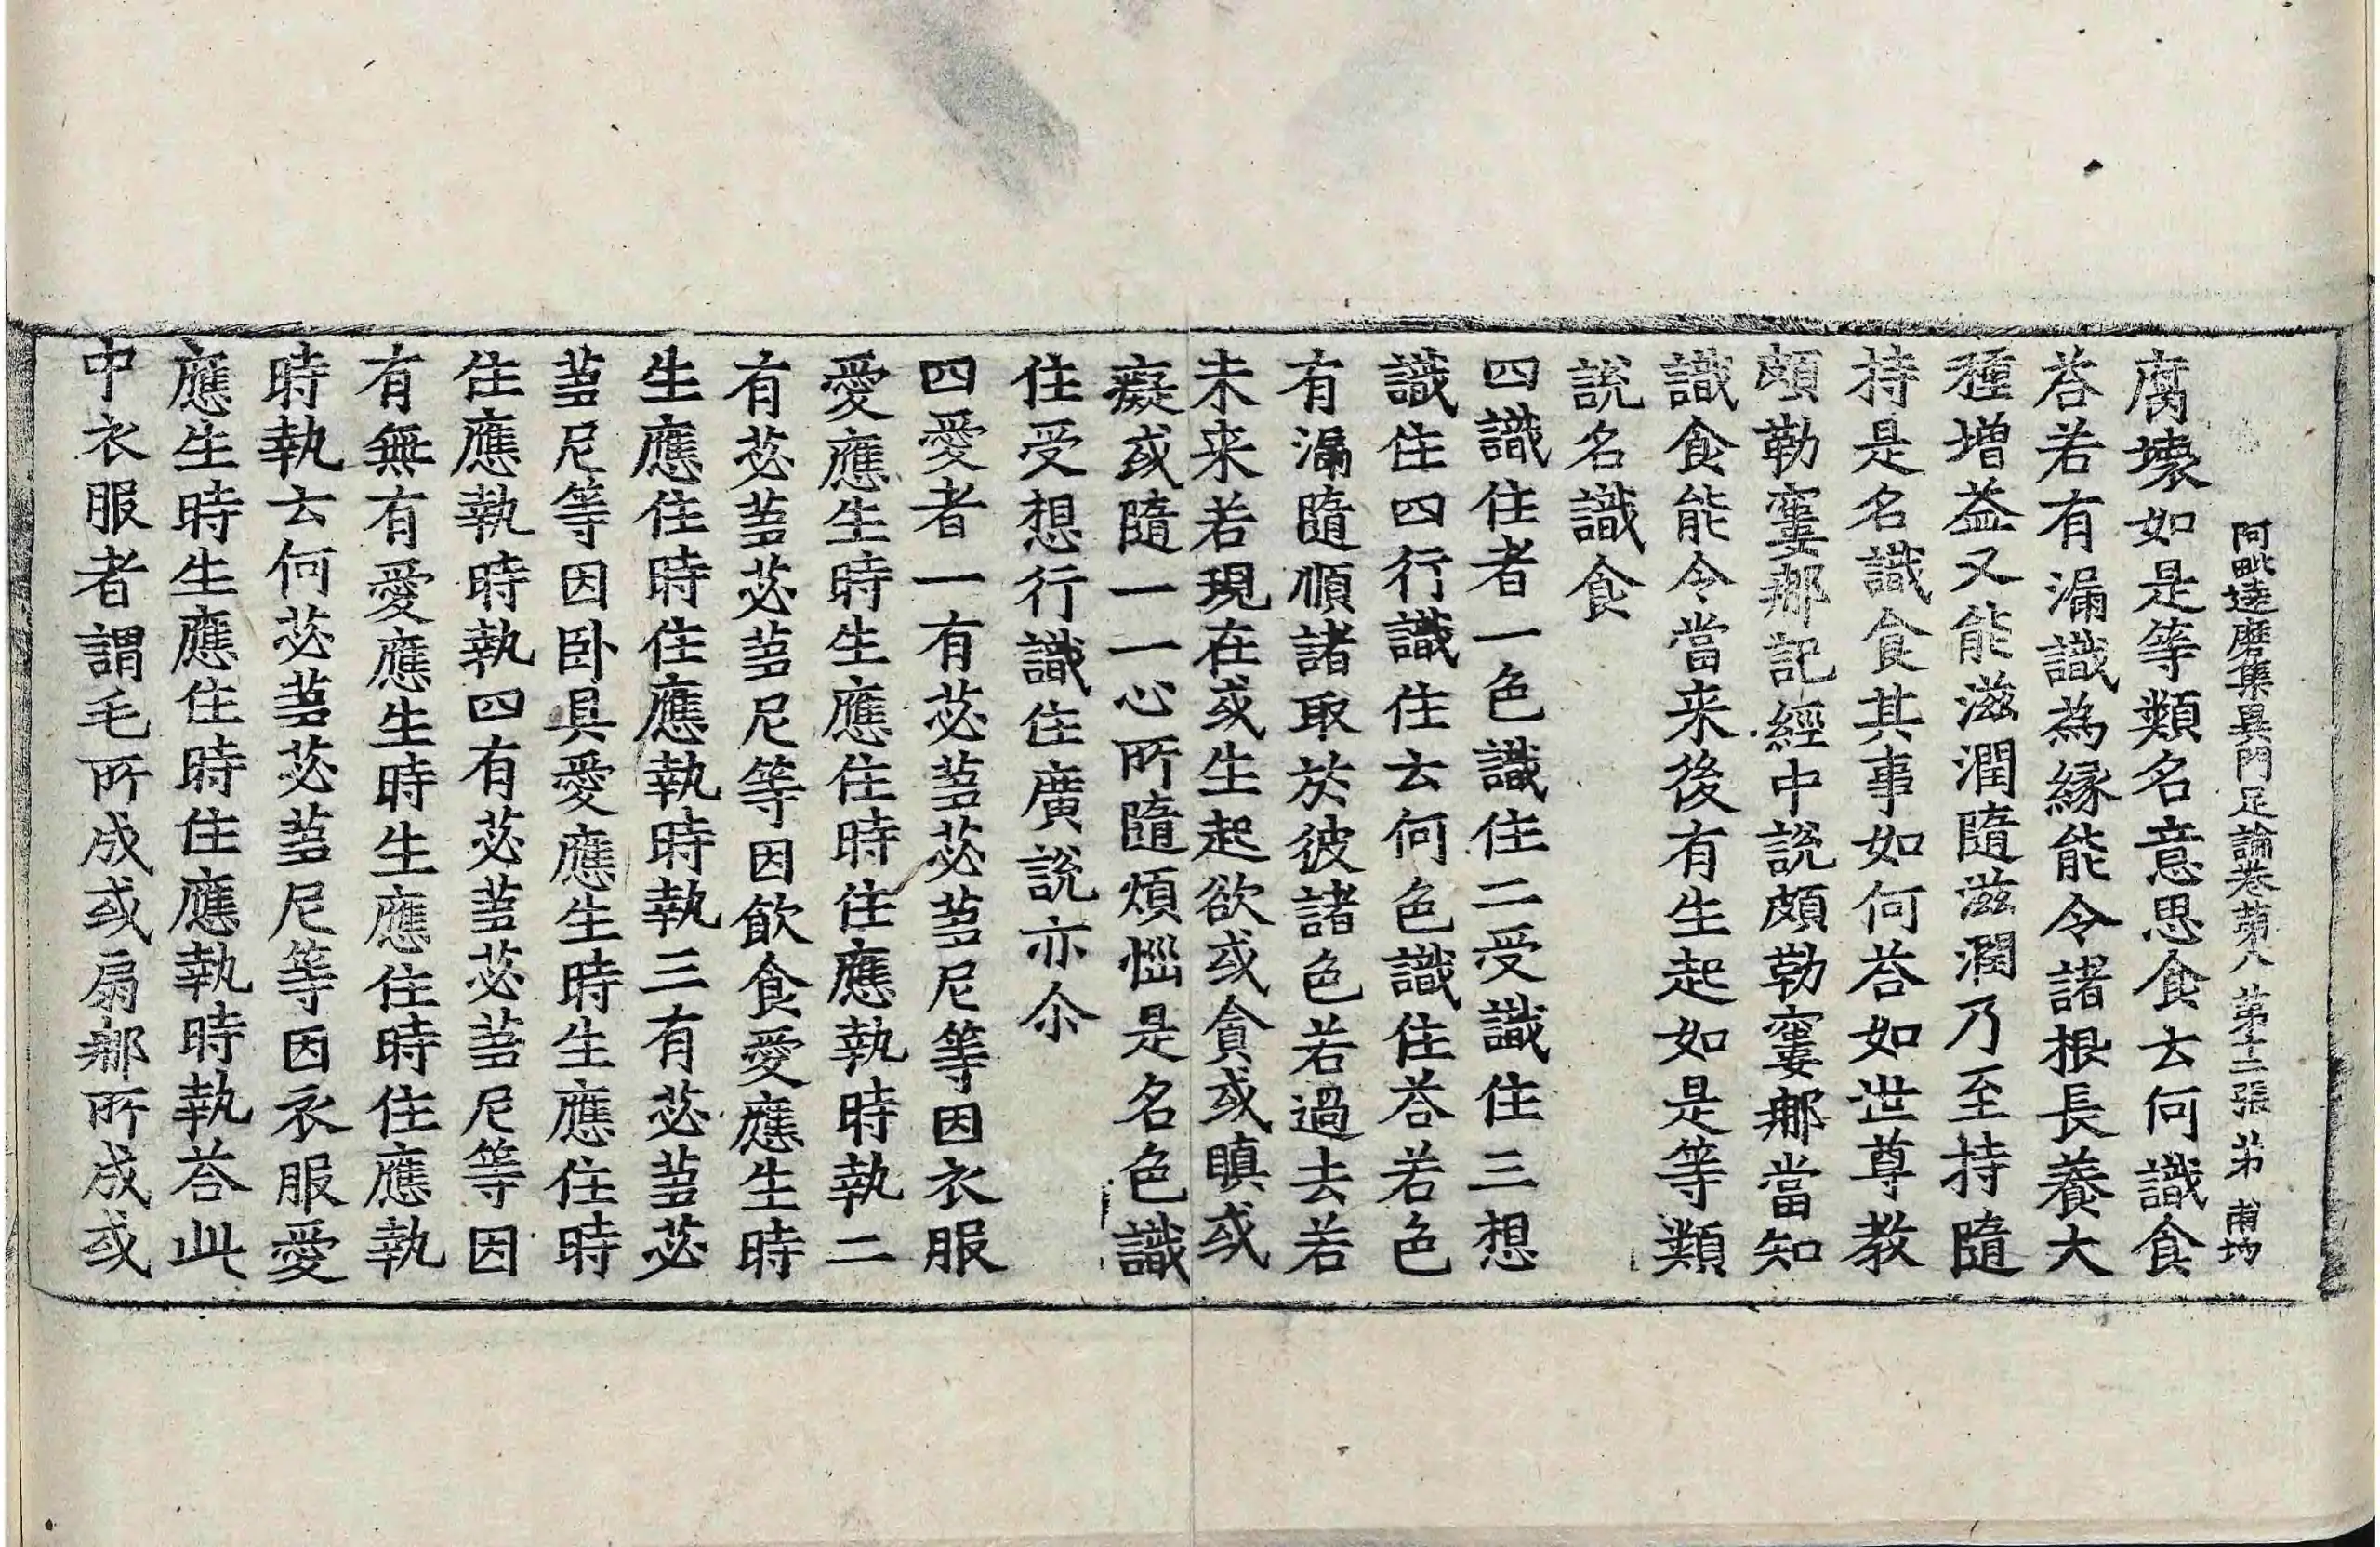 阿毗達磨集異門足論卷第八 第十二張 弟
腐壞如是等類名意思食云何識食
荅若有漏識為緣能令諸根長養大
種增益又能滋潤隨滋潤乃至持隨
持是名識食其事如何荅如世尊教
頗勒窶那記經中說頗勒窶那當知
識食能令當来後有生起如是等類
說名識食
四識住者一色識住二受識住三想
識住四行識住云何色識住荅若色
有漏隨順諸取於彼諸色若過去若
未来若現在或生起欲或貪或瞋或
癡或隨一一心所隨煩惱是名色識
住受想行識住廣說亦尒
四愛者一有苾蒭苾蒭尼等因衣服
愛應生時生應住時住應執時執二
有苾蒭苾蒭尼等因飲食愛應生時
生應住時住應執時執三有苾蒭苾
蒭尼等因卧具愛應生時生應住時
住應執時執四有苾蒭苾蒭尼等因
有無有愛應生時生應住時住應執
時執云何苾蒭苾蒭尼等因衣服愛
應生時生應住時住應執時執荅此
中衣服者謂毛所成或扇那所成或